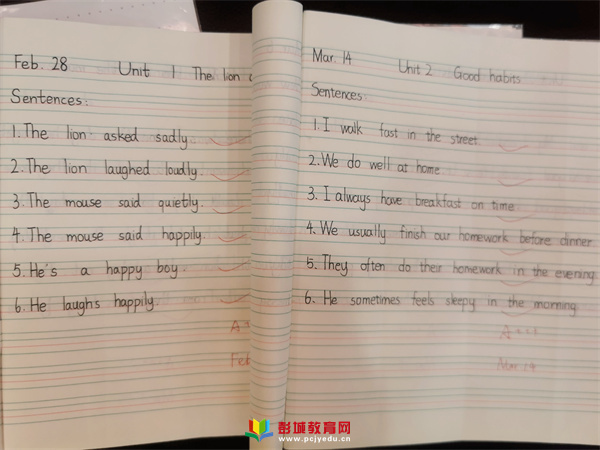 Feb. 28
Unit 1 The lion
Sentences:
1. The lion asked sadly.
2. The lion laughed loudly.
3. The mouse said quietly.
4. The mouse said happily.
5. He's a happy boy.
6. He laughs happily.
A
Feb
Mar. 14
Unit 2 Good habits
Sentences:
1. I walk fast in the street.
2. We do well at home.
3. I always have breakfast on time.
4. We usually finish our homework before dinner
5. They often do their homework in the evening
6. He sometimes feels sleepy in the morning
A+++
Mar. 14
彭城教育网
www.pcjyedu.cn